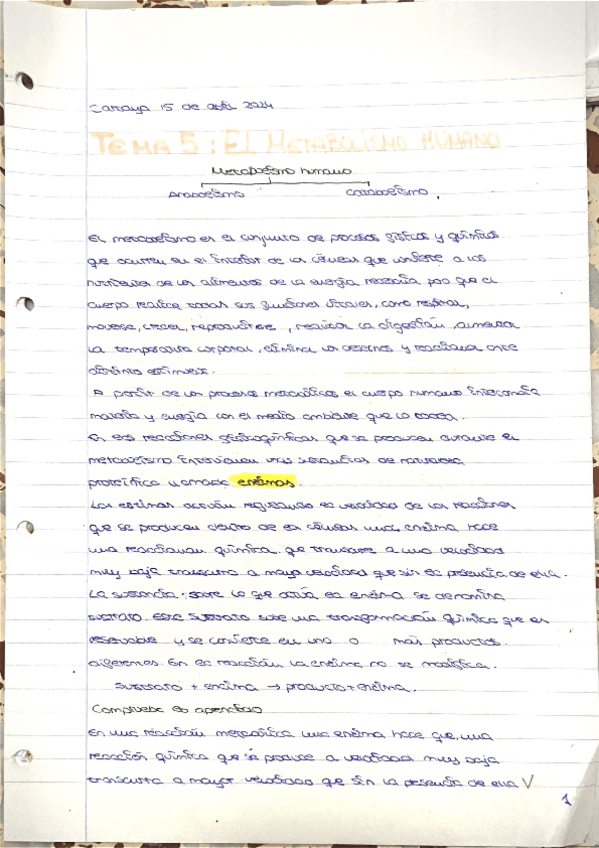 15 de abril 2024
TEMA 5: EL METABOLISMO HUMANO
Metabolismo humano
Anabolismo Catabolismo
El metabolismo es el conjunto de procesos físicos y químicos
que ocurren en el interior de las células que convierte a los
nutrientes de los alimentos de la energía necesaria para que el
cuerpo realice todas sus funciones vitales, como respirar,
moverse, crecer, reproducirse, realizar la digestión, aumentar
la temperatura corporal, elimina los desechos y reacciona ante
distinto estímulos.
A partir de los procesos metabólicos el cuerpo humano intercambia
materia y energía con el medio ambiente que lo rodea.
En esas reacciones que se producen durante el
metabolismo intervienen unas sustancias de naturaleza
proteítica llamada enzimas.
Las enzimas actúan regulando la velocidad de las reacciones
que se producen dentro de la células una enzima hace
una química que transcurre a una velocidad
muy baja transcurra a mayor velocidad que sin la presencia de ella.
La sustancia sobre la que actúa la enzima se denomina
sustrato. Este sustrato sufre una transformación química que es
y se convierte en uno o más productos
diferentes. En la reacción la enzima no se modifica.
Sustrato + enzima → producto + enzima.
Comprueba lo aprendido
En una reacción metabólica una enzima hace que, una
reacción química que se produce a velocidad muy baja
transcurra a mayor velocidad que sin la presencia de ella V
1